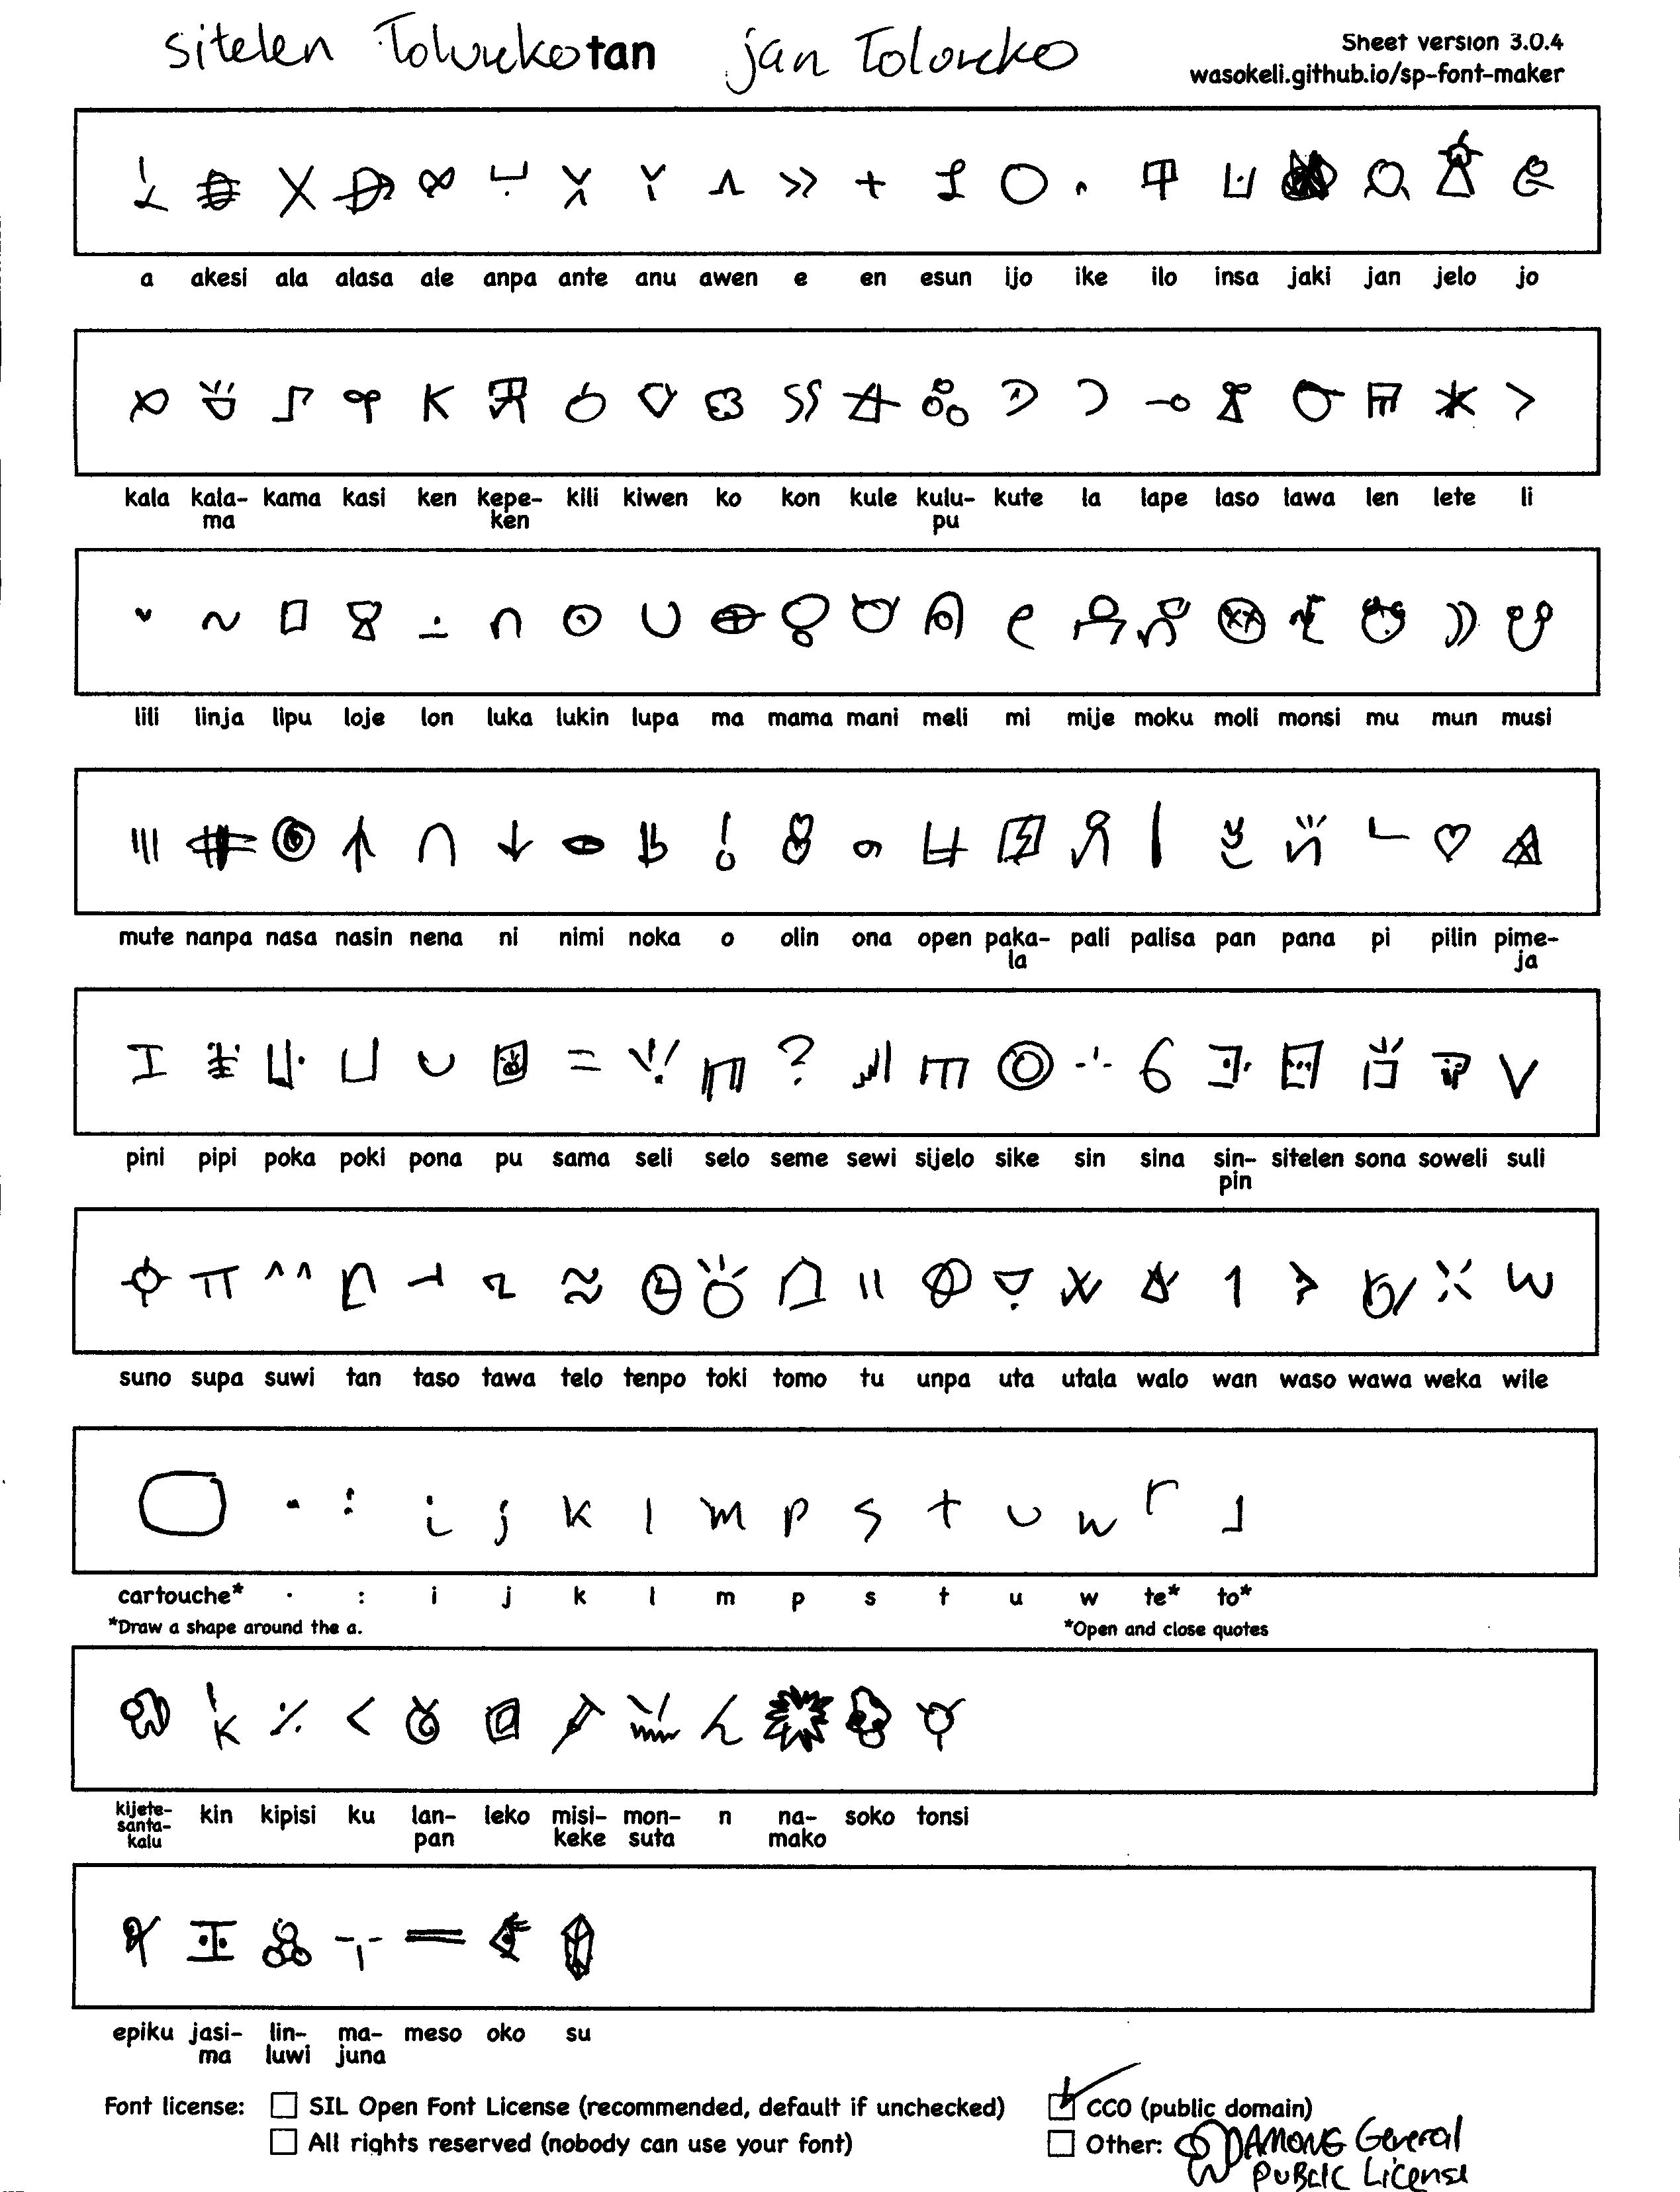 sitelen Tolueko tan jan Tolueko
Sheet version 3.0.4
wasokeli.github.io/sp-font-maker
a akesi ala alasa ale anpa ante anu awen e en esun ijo ike ilo insa jaki jan jelo jo
kala kala-ma kama kasi ken kepe-ken kili kiwen ko kon kule kulu-pu kute la lape laso lawa len lete li
lili linja lipu loje lon luka lukin lupa ma mama mani meli mi mije moku moli monsi mu mun musi
mute nanpa nasa nasin nena ni nimi noka o olin ona open paka-la pali palisa pan pana pi pilin pime-ja
pini pipi poka poki pona pu sama seli selo seme sewi sijelo sike sin sina sin-pin sitelen sona soweli suli
suno supa suwi tan taso tawa telo tenpo toki tomo tu unpa uta utala walo wan waso wawa weka wile
i j k l m p s t u w
cartouche* · : i j k l m p s t u w te* to*
*Draw a shape around the a. *Open and close quotes
kijete-santa-kalu kin kipisi ku lan-pan leko misi-keke mon-suta n na-mako soko tonsi
epiku jasi-ma lin-luwi ma-juna meso oko su
Font license: SIL Open Font License (recommended, default if unchecked) CC0 (public domain)
All rights reserved (nobody can use your font) Other: AMONG General
PUBLIC License